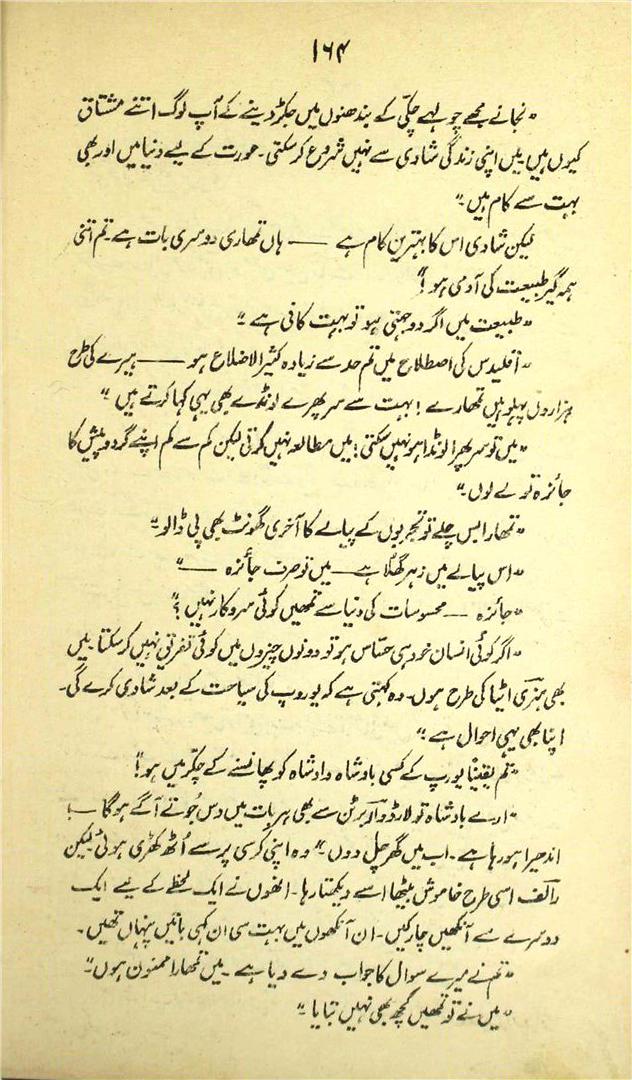 ۱۶۴
"نجانے مجھے چولہے چکّی کے بندھنوں میں جکڑ دینے کے آپ لوگ اتنے مشتاق
کیوں ہیں۔ میں اپنی زندگی شادی سے نہیں شروع کر سکتی۔ عورت کے لیے دنیا میں اور بھی
بہت سے کام ہیں۔"
لیکن شادی اس کا بہترین کام ہے —— ہاں تمھاری دوسری بات ہے۔ تم اتنی
ہمہ گیر طبیعت کی آدمی ہو!"
"طبیعت میں اگر دو جہتی ہو تو بہت کافی ہے۔"
"اقلیدس کی اصطلاح میں تم حد سے زیادہ کثیر الاضلاع ہو —— ہیرے کی طرح
ہزاروں پہلو ہیں تمھارے! بہت سے سر پھرے لونڈے بھی یہی کہا کرتے ہیں"
"میں تو سر پھرا لونڈا ہو نہیں سکتی! میں مطالعہ نہیں کرتی لیکن کم سے کم اپنے گرد و پیش کا
جائزہ تو لے لوں۔"
"تمھارا بس چلے تو تجربوں کے پیالے کا آخری گھونٹ بھی پی ڈالو۔"
"اس پیالے میں زہر گھلا ہے — میں تو صرف جائزہ —"
"جائزہ — محسوسات کی دنیا سے تمھیں کوئی سروکار نہیں؟"
"اگر کوئی انسان خود ہی حسّاس ہو تو دونوں چیزوں میں کوئی تفرق نہیں کر سکتا۔ میں
بھی ہنری اٹیا کی طرح ہوں۔ وہ کہتی ہے کہ یوروپ کی سیاحت کے بعد شادی کرے گی۔
اپنا بھی یہی احوال ہے۔"
"تم یقیناً یورپ کے کسی بادشاہ وادشاہ کو پھانسنے کے چکّر میں ہو!"
"ارے بادشاہ تو لارڈ واربرٹن سے بھی ہر بات میں دس جُوتے آگے ہو گا —!
اندھیرا ہو رہا ہے۔ اب میں گھر چل دوں۔" وہ اپنی کرسی پر سے اُٹھ کھڑی ہوئی لیکن
رالف اسی طرح خاموش بیٹھا اسے دیکھتا رہا۔ انھوں نے ایک لحظے کے لیے ایک
دوسرے سے آنکھیں چار کیں۔ ان آنکھوں میں بہت سی ان کہی باتیں پنہاں تھیں۔
"تم نے میرے سوال کا جواب دے دیا ہے۔ میں تمھارا ممنون ہوں۔"
"میں نے تو تمھیں کچھ بھی نہیں بتایا۔"